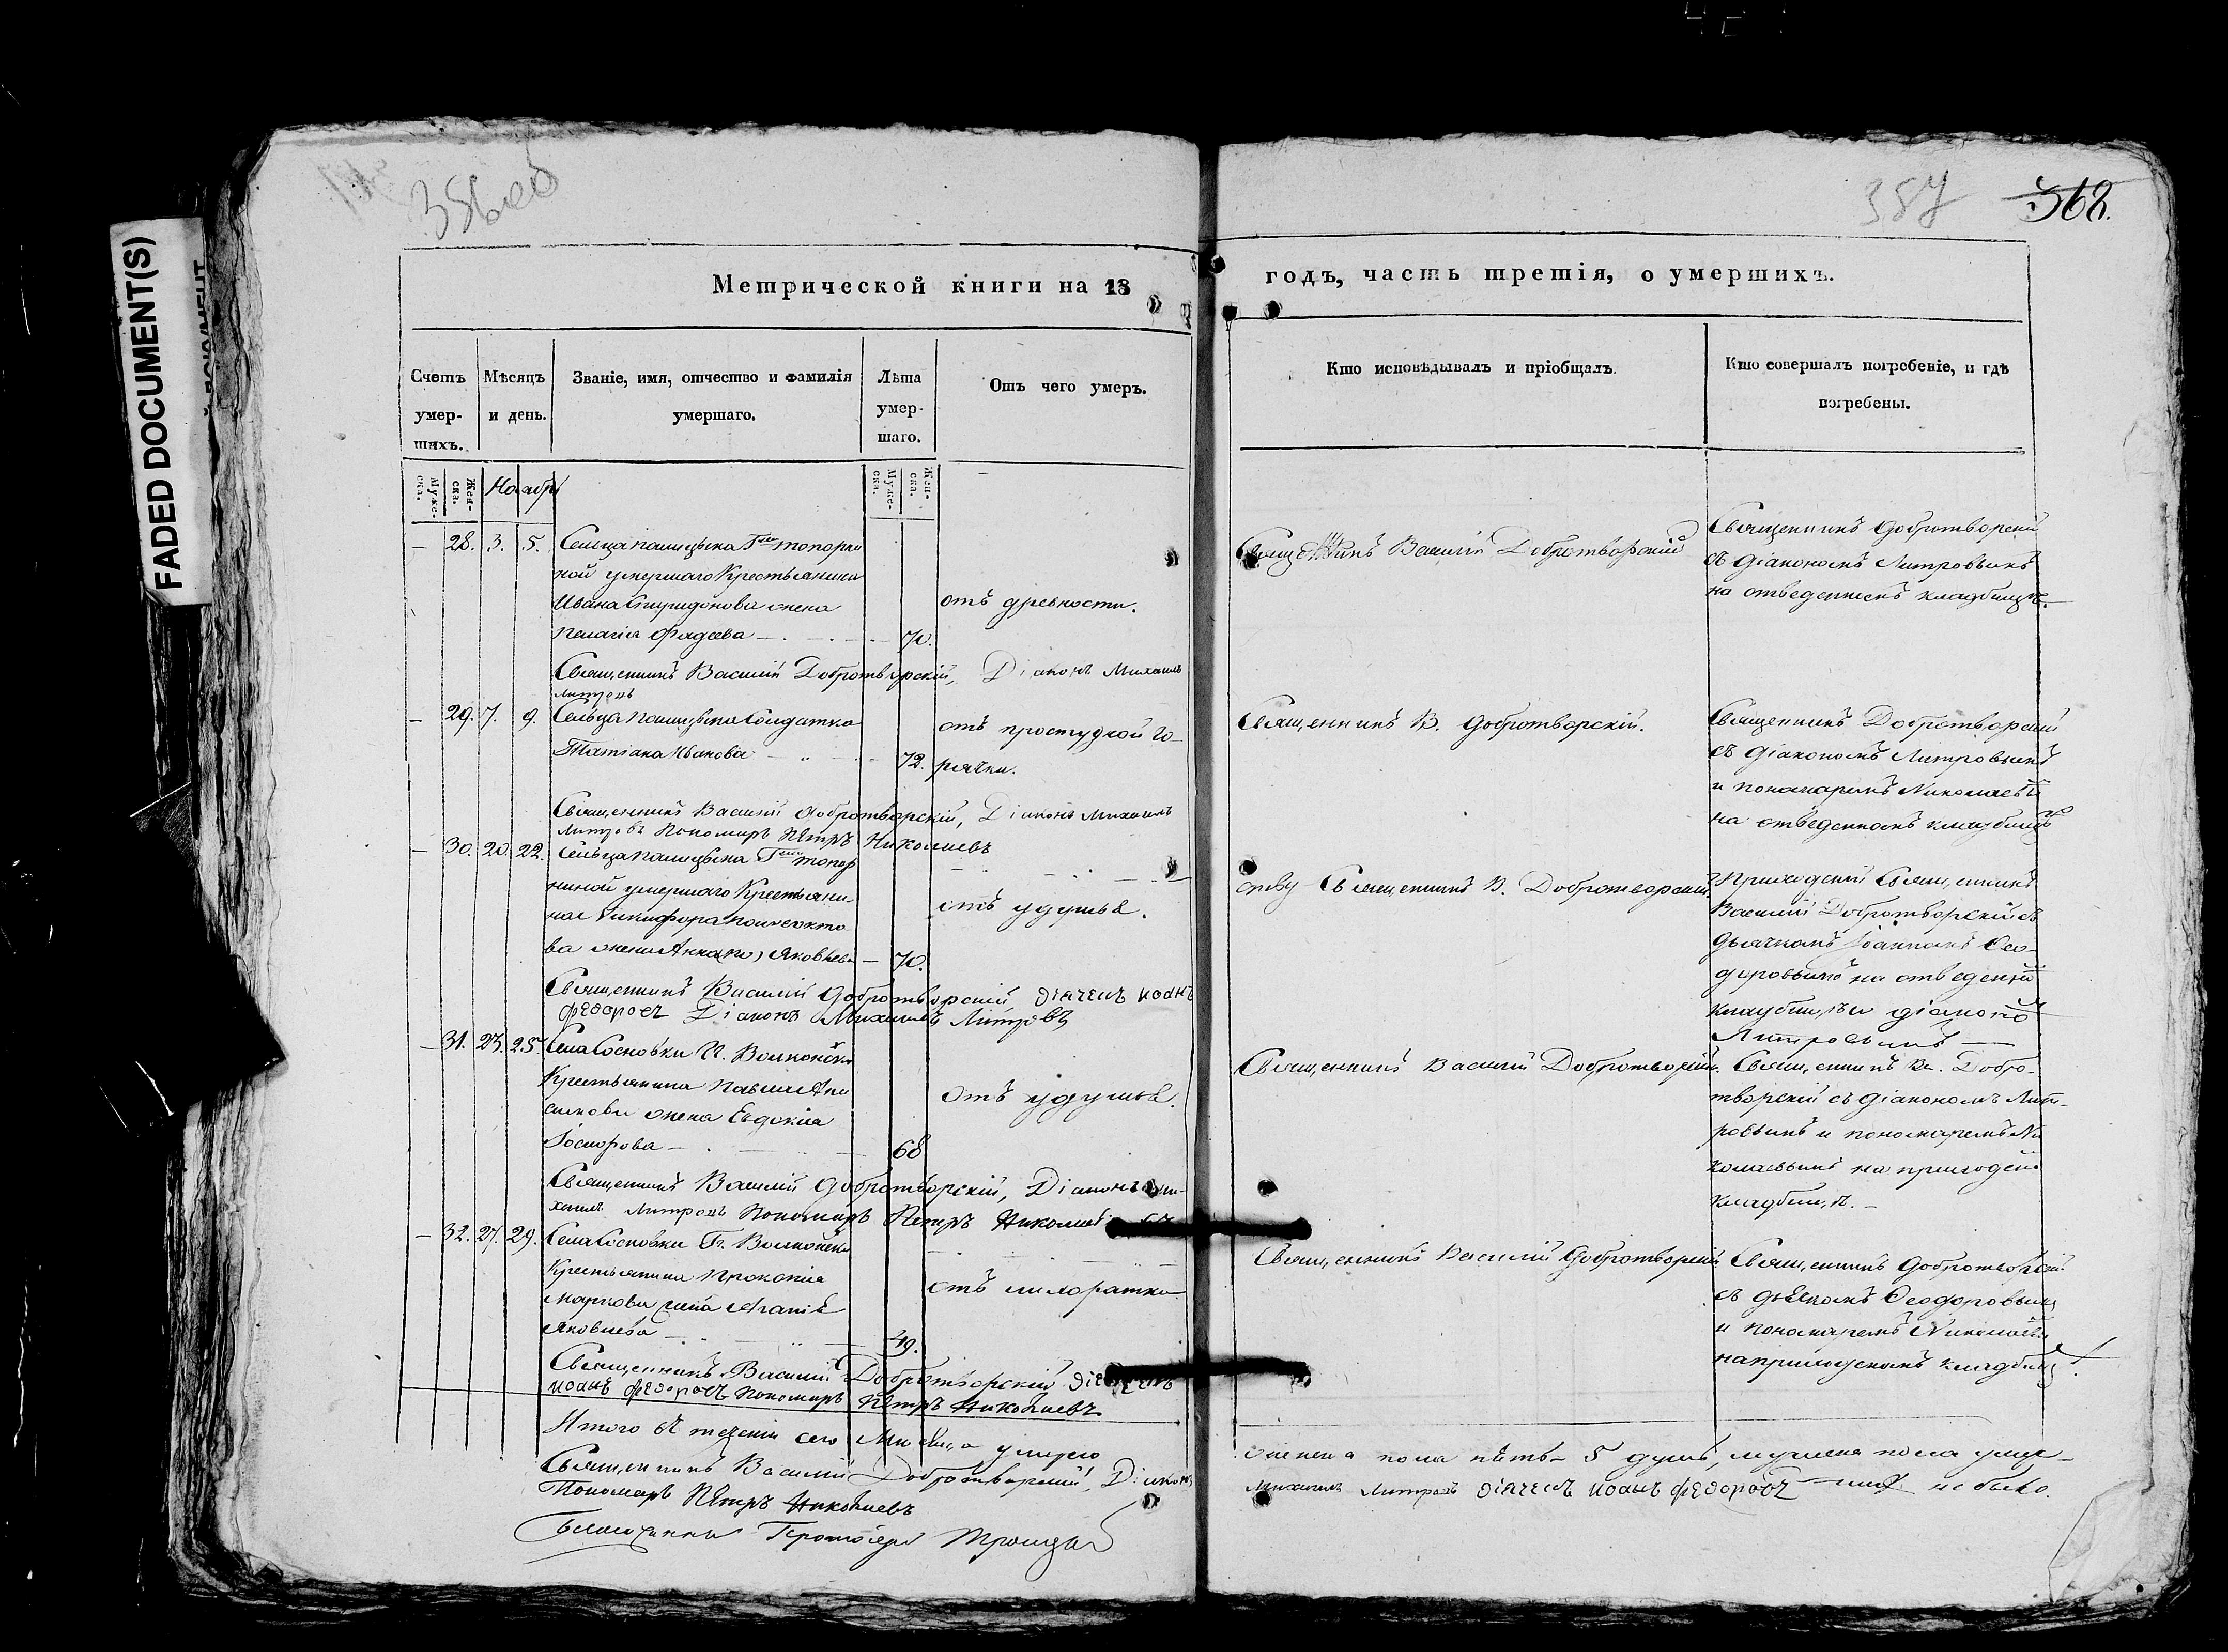 FADED DOCUMENT(S)
356 об
357
368.
Метрической книги на 18
годъ, часть третія, о умершихъ.
Счетъ умер-шихъ.
Мѣсяцъ и день.
Званіе, имя, отчество и фамилія умершаго.
Лѣта умер-шаго.
Отъ чего умеръ.
Кто исповѣдывалъ и пріобщалъ.
Кто совершалъ погребеніе, и гдѣ погребены.
Муже-ска.
Жен-ска.
Ноябрь
Муже-ска.
Жен-ска.
— 28. 3. 5. Сельца Палицына Г
ной умершаго Крестьянина
Ивана Спиридонова жена
Пелагія Фадеева — 70.
отъ древности.
Священникъ Василій Добротворскій
Священникъ Добротворскій
съ діакономъ Литровымъ
на отведенномъ кладбищѣ.
Священникъ Василій Добротворскій, Діаконъ Михаилъ
Литровъ
— 29. 7. 9. Сельца Палицына Солдатка
Татіана Иванова — 72.
отъ простудной го-
рячки.
Священникъ В. Добротворскій.
Священникъ Добротворскій
съ діакономъ Литровымъ
и пономаремъ Николаевы
на отведенномъ кладбищѣ
Священникъ Василій Добротворскій, Діаконъ Михаилъ
Литровъ Пономарь Петръ Николаевъ
— 30. 20. 22. Сельца Палицына Г
ниной умершаго Крестьяни-
на Никифора
ва жена Анна Яковлева — 70.
отъ удушья.
Священникъ В. Добротворскій.
Приходскій Священникъ
Василій Добротворскій съ
дьячкомъ Іоанномъ Ѳео-
доровымъ на отведенно
кладбищѣ и діаконо
Литровымъ —
Священникъ Василій Добротворскій, діячекъ иоанъ
федоровъ Діаконъ Михаилъ Литровъ
— 31. 23. 25. Села Сосновки Волконск
Крестьянина Павла
жена Евдокія
68
отъ удушья.
Священникъ Василій Добротворскій.
Священникъ В. Добро-
творскій съ діакономъ Лит-
ровымъ и пономаремъ Ни
колаевымъ на приходско
кладбищѣ. —
Священникъ Василій Добротворскій, Діаконъ Ми-
хаилъ Литровъ Пономарь Петръ Николаевъ
— 32. 27. 29. Села Сосновки Волконск
Крестьянина Прокопія
Маркова жена
Яковлева — 49.
отъ лихоратки
Священникъ Василій Добротворскій
Священникъ Добротворскій
съ дьячкомъ Ѳеодоровымъ
и пономаремъ Николаевы
на приходскомъ кладбищ
Священникъ Василій Добротворскій діячекъ
иоанъ федоровъ Пономарь Петръ Николаевъ
Итого въ теченіи сего Мѣсяца умерло
женска пола пять — 5 душъ, мужеска пола умер-
шихъ не было.
Священникъ Василій Добротворскій, Діаконъ
Михаилъ Литровъ діячекъ иоанъ федоровъ
Пономарь Петръ Николаевъ
Благочинный Протоіерей Троицкій